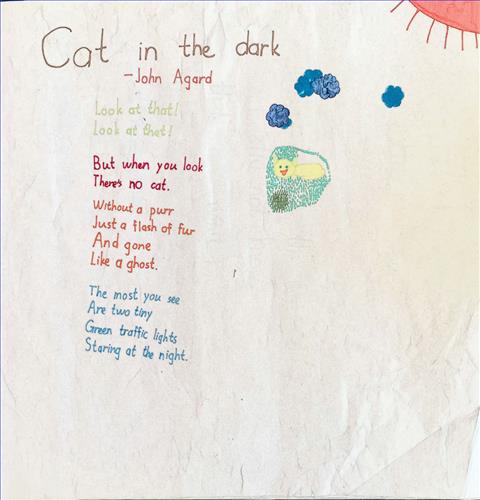 Cat in the dark
-John Agard
Look at that!
Look at that!
But when you look
There's no cat.
Without a purr
Just a flash of fur
And gone
Like a ghost.
The most you see
Are two tiny
Green traffic lights
Staring at the night.